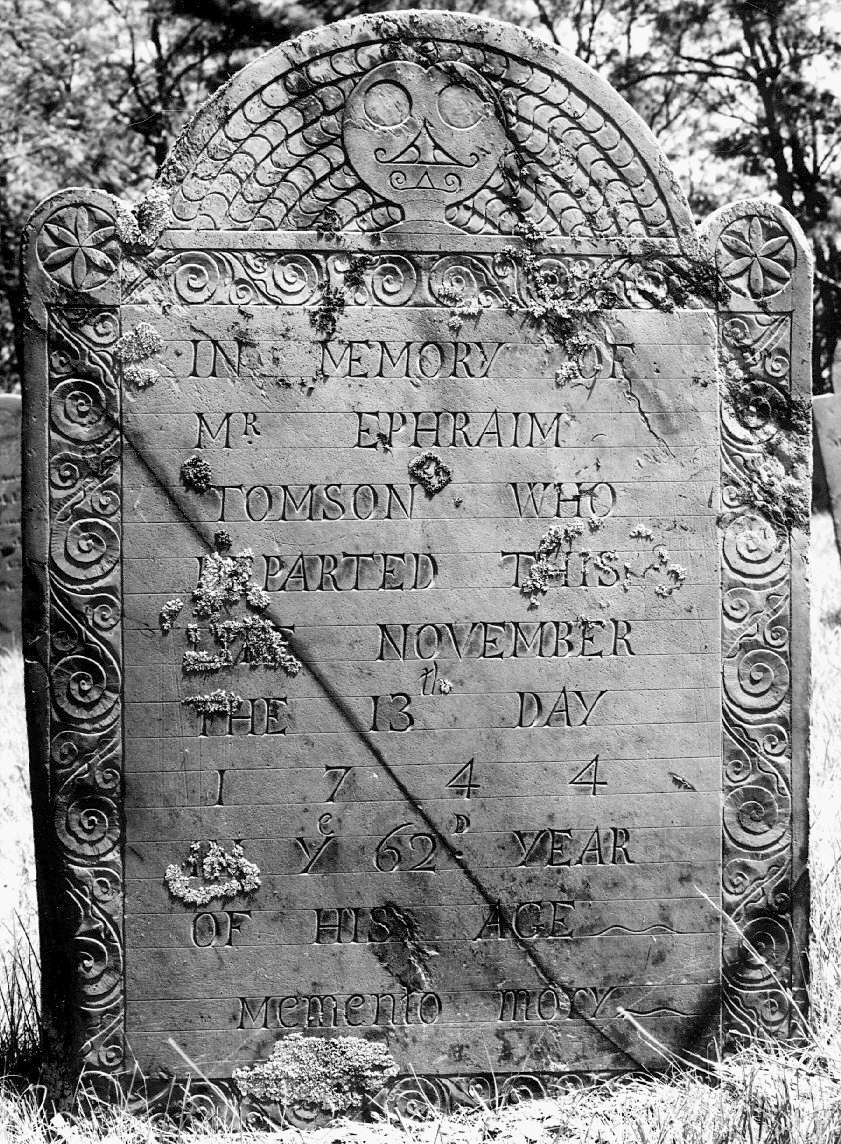 IN MEMORY OF
Mʳ EPHRAIM
TOMSON WHO
DEPARTED THIS
LIFE NOVEMBER
THE 13ᵗʰ DAY
1 7 4 4
IN Yᵉ 62ᴰ YEAR
OF HIS AGE
Memento mory